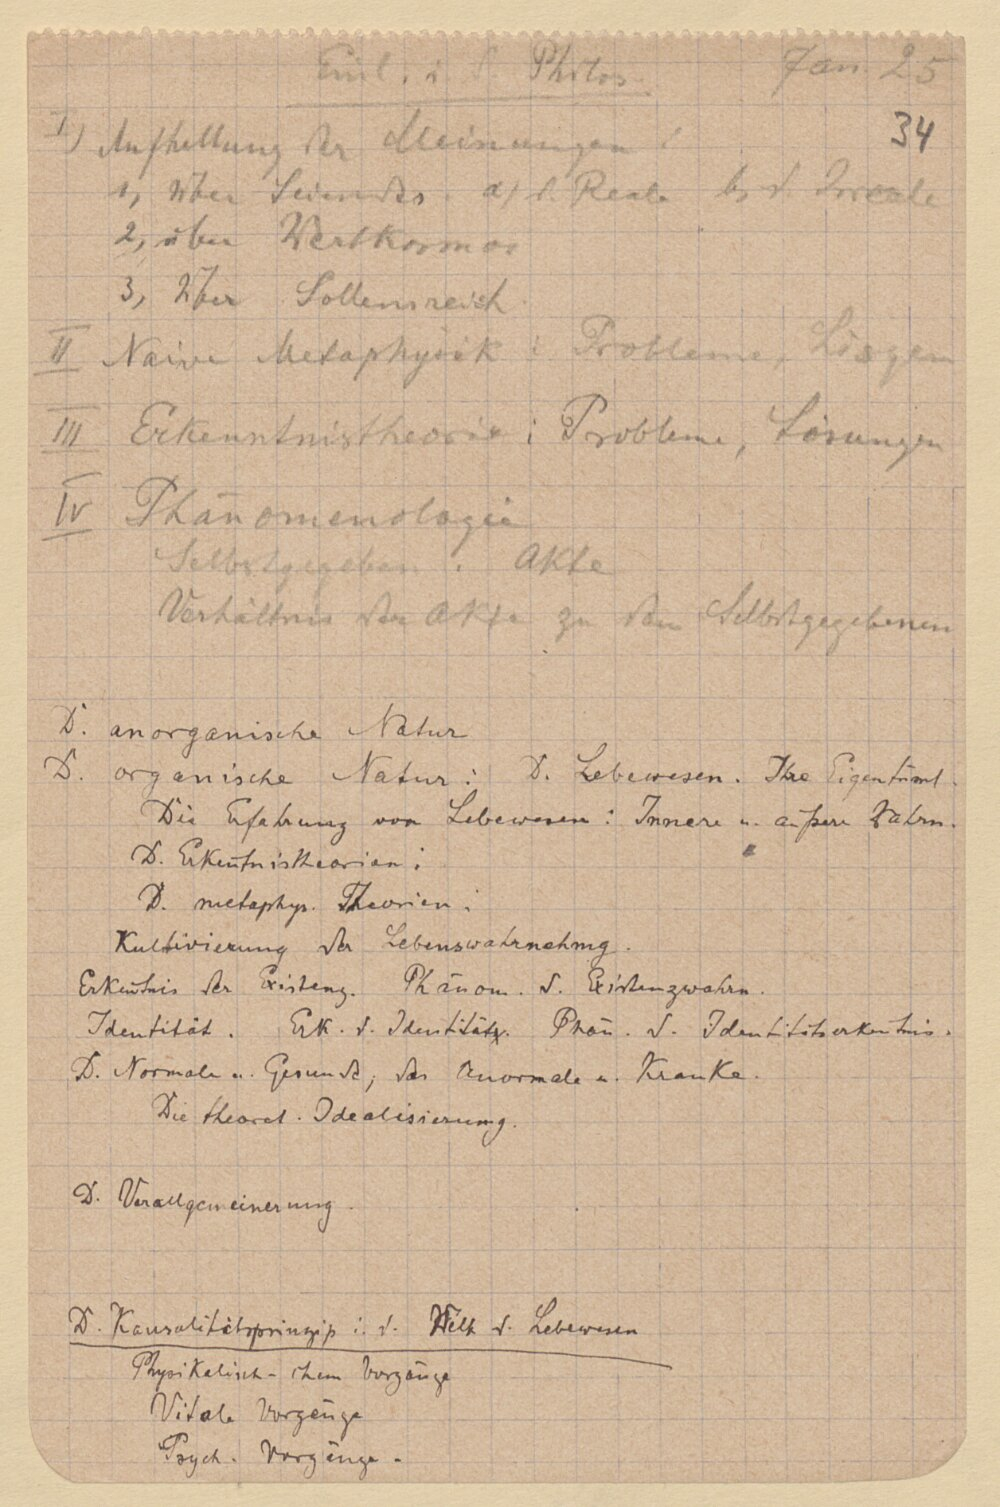 Einl. i. d. Philos. Jan. 25
34
I) Aufhellung der Meinungen :
1, Über Seiendes. a) d. Reale b) d. Ireale
2, über Wertkosmos
3, Über Sollensreich.
II Naive Metaphysik : Probleme, Lösgen
III Erkenntnistheorie : Probleme, Lösungen
IV Phänomenologie
Selbstgegeben. Akte
Verhältnis der Akte zu dem Selbstgegebenen
D. anorganische Natur
D. organische Natur : D. Lebewesen. Ihre Eigentüml.
Die Erfahrung von Lebewesen : Innere u. äußere Wahrn.
D. Erkentnistheorien :
D. metaphys. Theorien :
Kultivierung der Lebenswahrnehmg.
Erkentnis der Existenz. Phänom. d. Existenzwahrn.
Identität. Erk. d. Identität. Phän. d. Identitätserkentnis.
D. Normale u. Gesunde, das Anormale u. Kranke.
Die theoret. Idealisierung.
D. Verallgemeinerung.
D. Kausalitätsprinzip i. d. Welt d. Lebewesen
Physikalisch-chem Vorgänge
Vitale Vorgänge
Psych. Vorgänge.